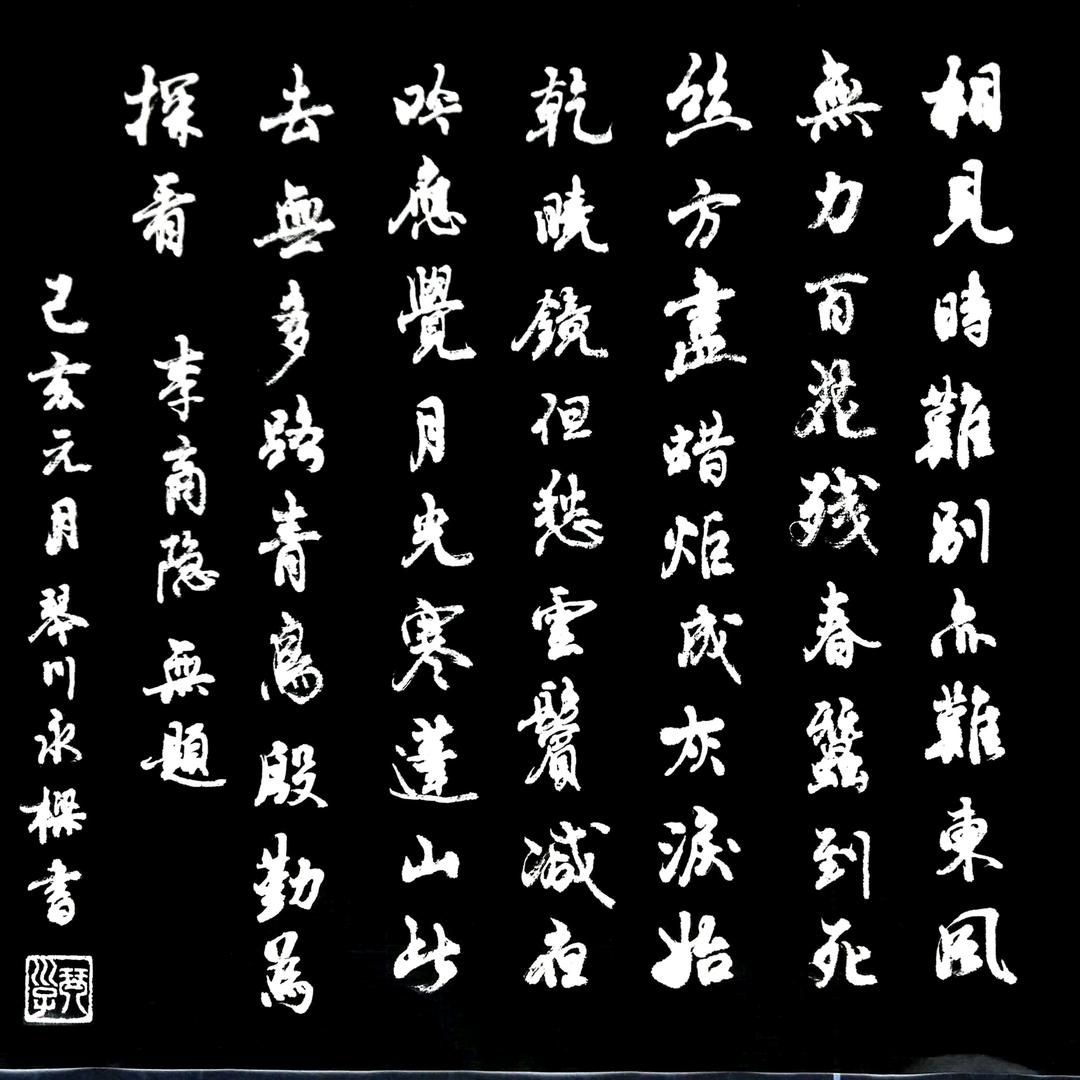 相見時難別亦難東風
無力百花残春蠶到死
絲方盡蜡炬成灰淚始
乾曉鏡但愁雲鬢减夜
吟應覺月光寒蓬山此
去無多路青鳥殷勤為
探看 李商隐 無題
己亥元月琴川永樑書